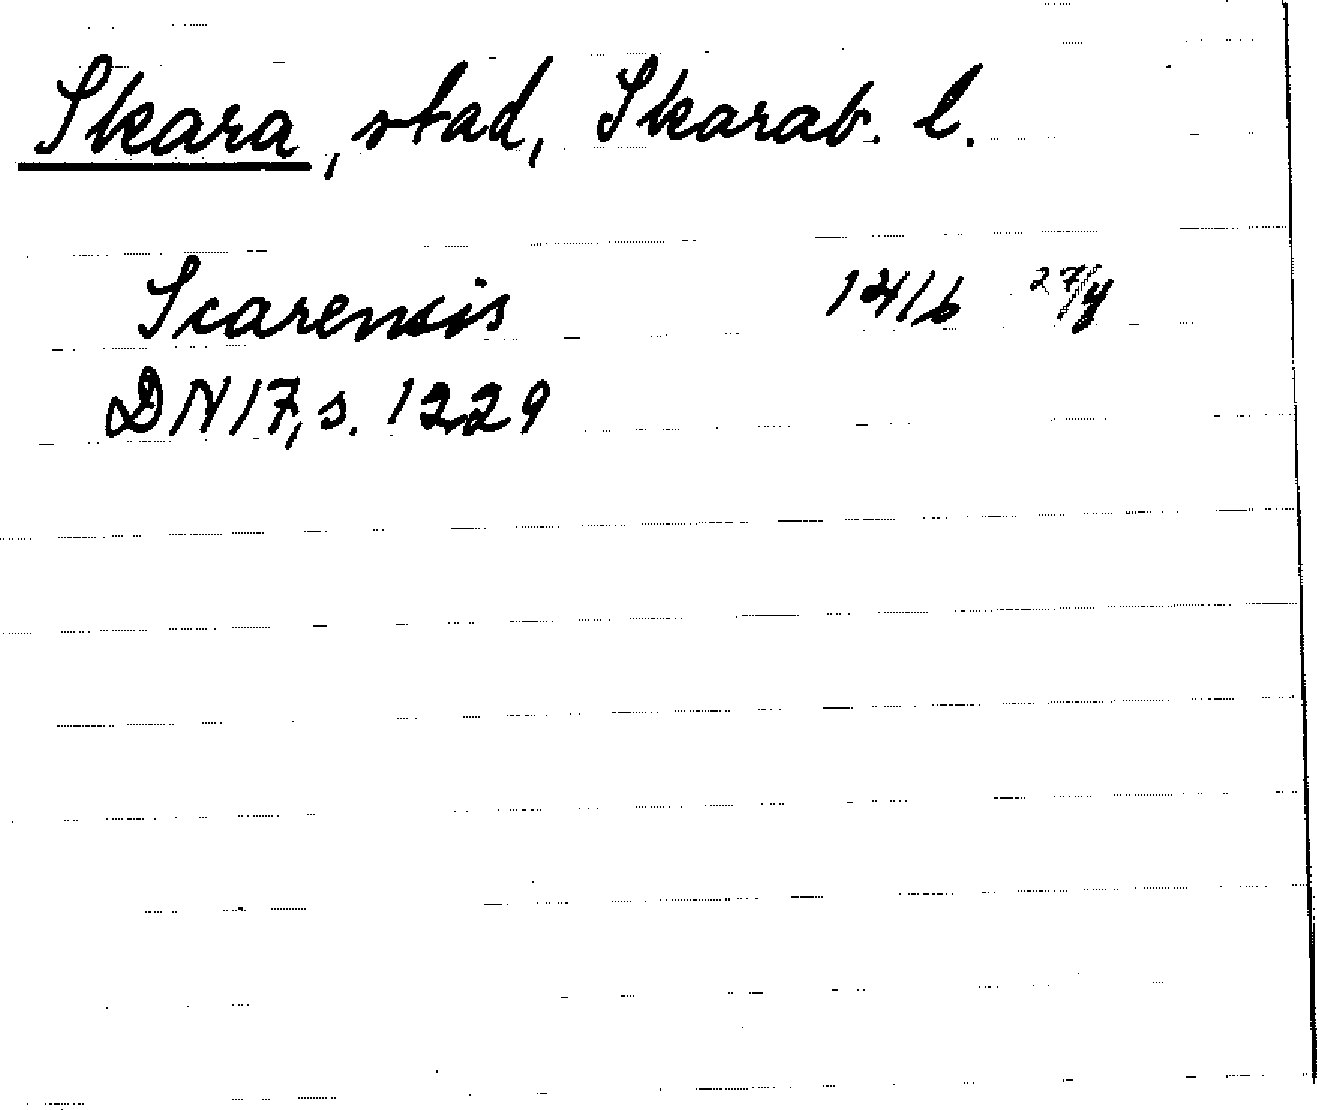 Skara, stad, Skarab. l.
Scarensis 1416 27/4
DN 17, s. 1229